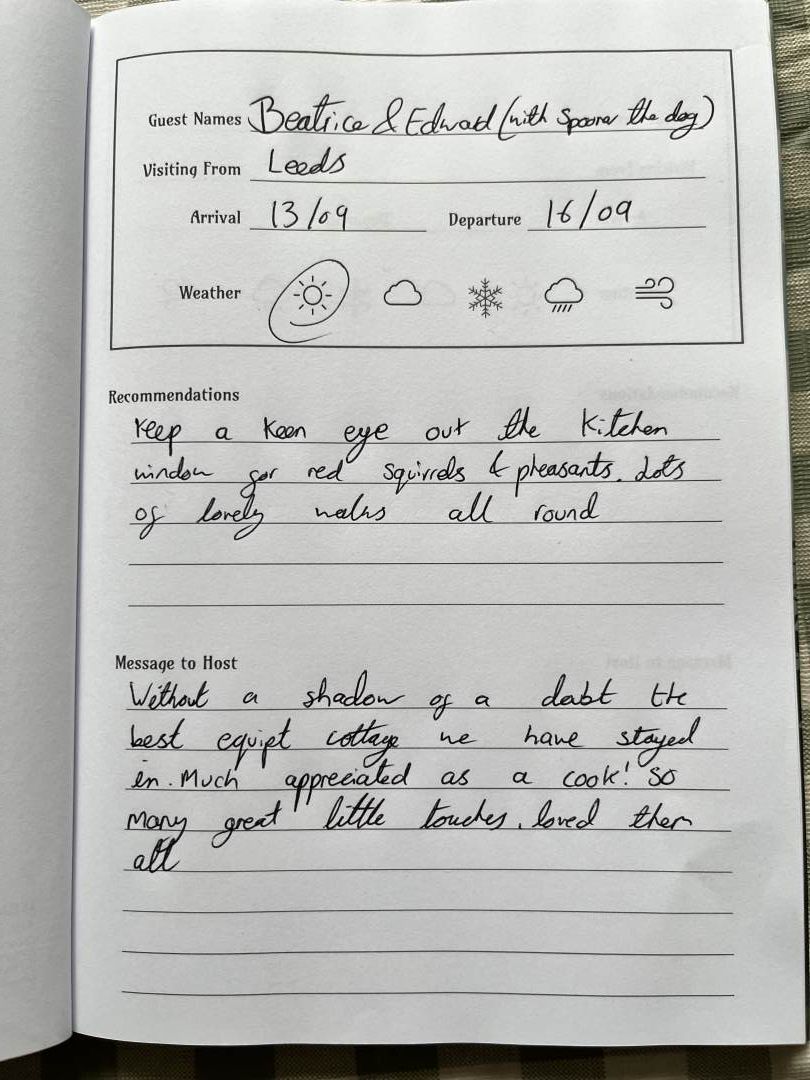 Guest Names Beatrice & Edward (with Spooner the dog)
Visiting From Leeds
Arrival 13/09 Departure 16/09
Weather
Recommendations
Keep a keen eye out the kitchen
window for red squirrels & pheasants. Lots
of lovely walks all round
Message to Host
Without a shadow of a dobt the
best equipt cottage we have stayed
in. Much appreciated as a cook! So
many great little touches, loved them
all